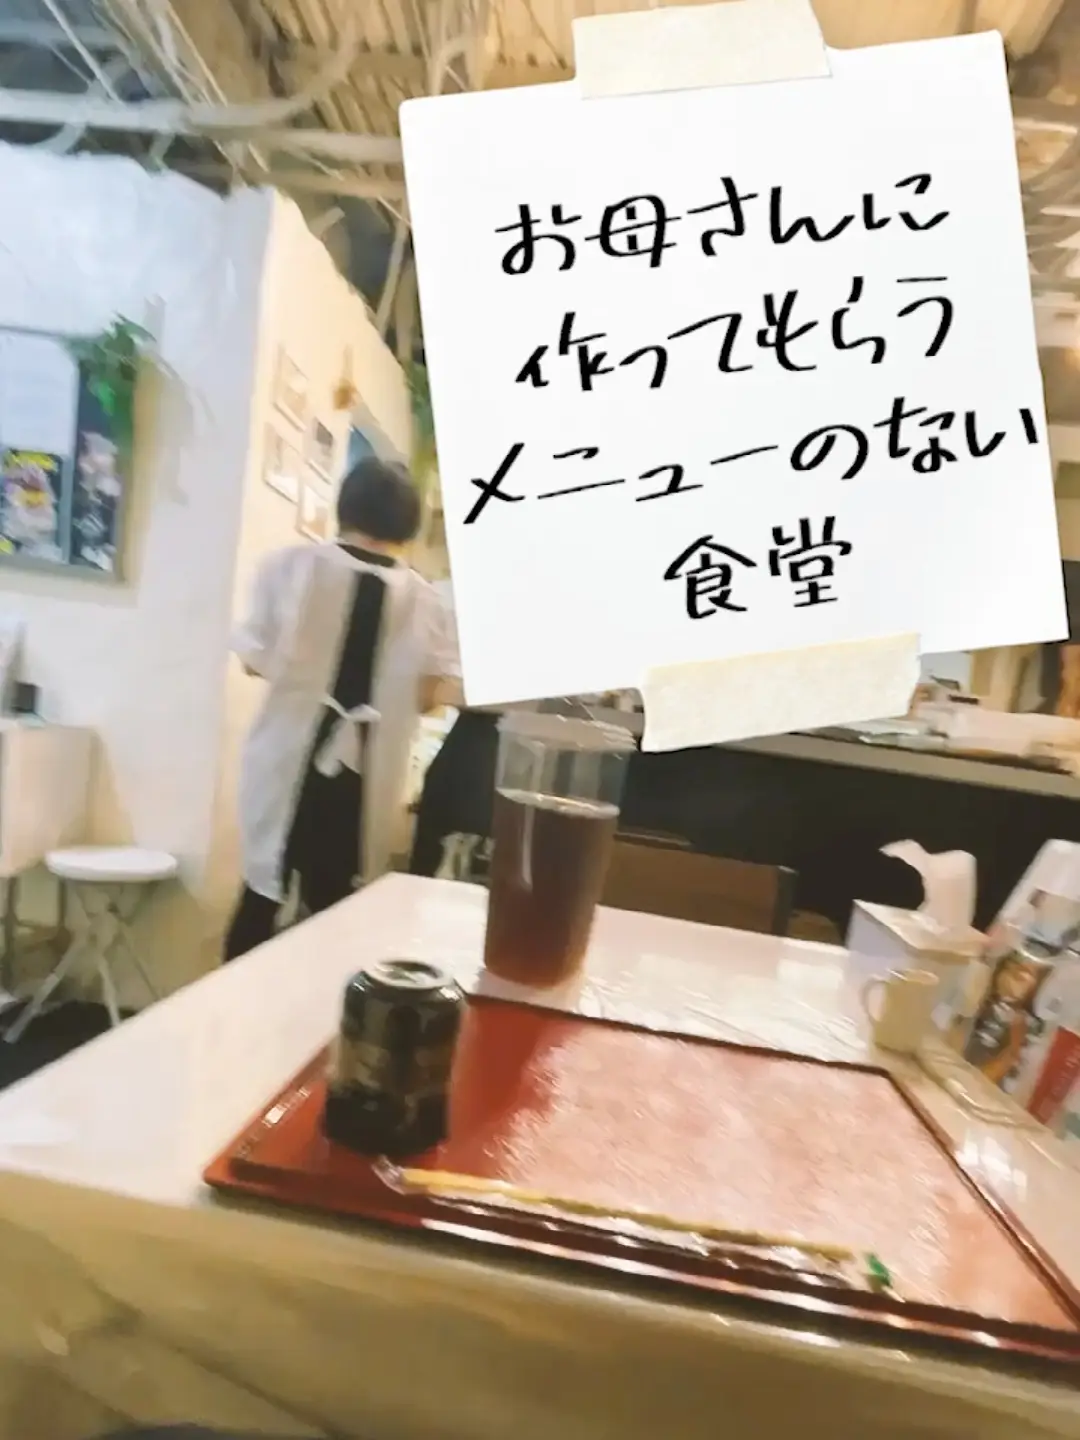 お母さんに
作ってもらう
メニューのない
食堂